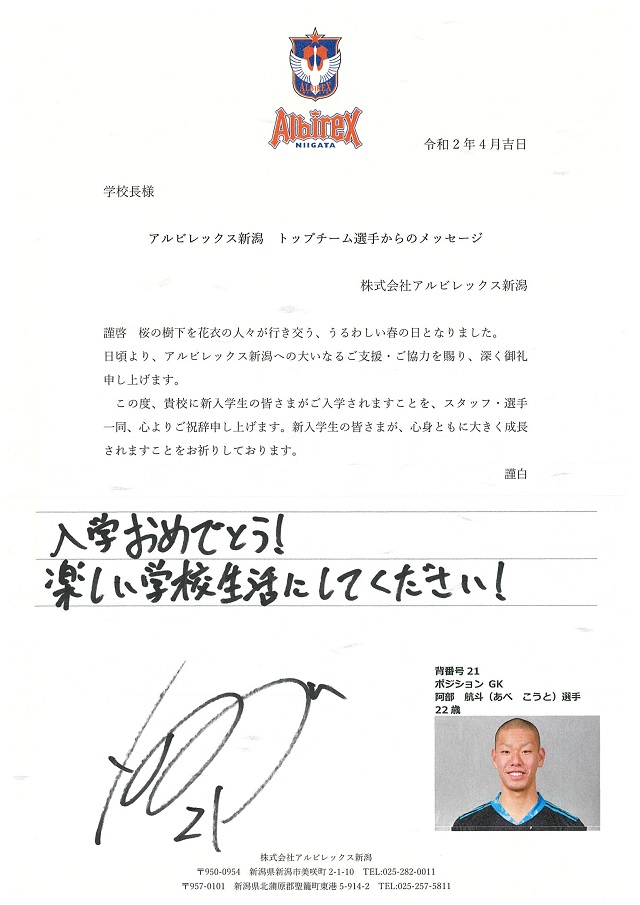 ALBIREX
AlbireX
NIIGATA
令和２年４月吉日
学校長様
アルビレックス新潟　トップチーム選手からのメッセージ
株式会社アルビレックス新潟
謹啓　桜の樹下を花衣の人々が行き交う、うるわしい春の日となりました。
日頃より、アルビレックス新潟への大いなるご支援・ご協力を賜り、深く御礼
申し上げます。
　この度、貴校に新入学生の皆さまがご入学されますことを、スタッフ・選手
一同、心よりご祝辞申し上げます。新入学生の皆さまが、心身ともに大きく成長
されますことをお祈りしております。
謹白
入学おめでとう！
楽しい学校生活にしてください！
背番号 21
ポジション GK
阿部　航斗（あべ　こうと）選手
22 歳
21
株式会社アルビレックス新潟
〒950-0954　新潟県新潟市美咲町 2-1-10　TEL:025-282-0011
〒957-0101　新潟県北蒲原郡聖籠町東港 5-914-2　TEL:025-257-5811